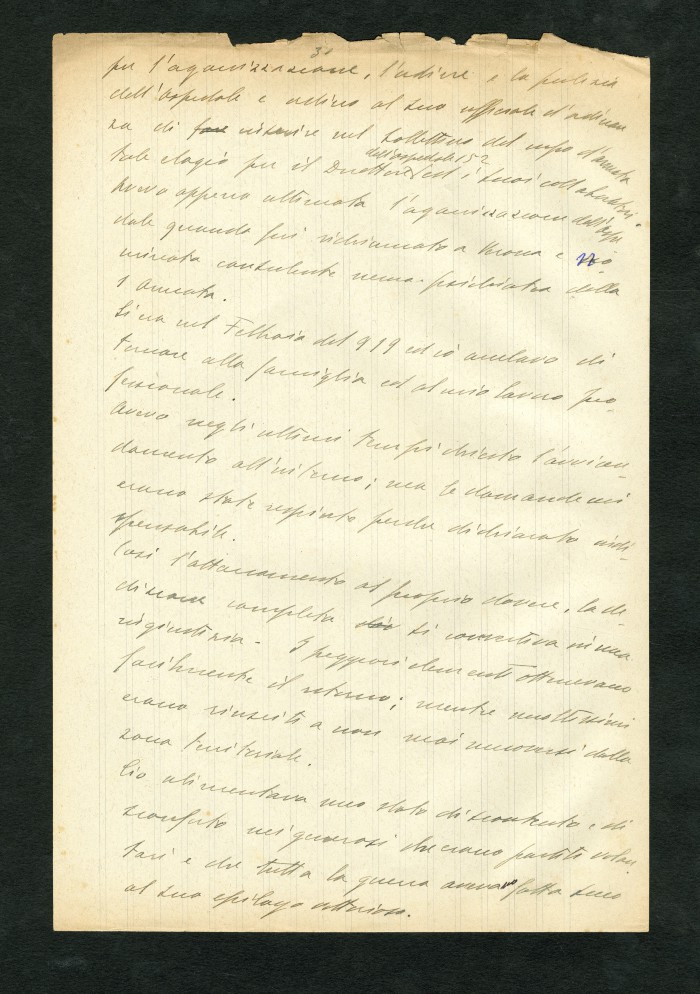 31
per l'organizzazione, l'ordine e la pulizia
dell'ospedale e ordinò al suo ufficiale d'ordinan
za di fare inserire nel bollettino del corpo d'armata
tale elogio per il Direttore ed i suoi collaboratori.
dell'ospedale 152
Avevo appena ultimata l'organizzazione dell'ospe
dale quando fui richiamato a Verona e no
minato consulente neuro-psichiatra della
1 Armata.
Si era nel Febbraio del 919 ed io anelavo di
tornare alla famiglia ed al mio lavoro pro-
fessionale.
Avevo negli ultimi tempi chiesto l'avvicen-
damento all'interno; ma le domande mi
erano state respinte perché dichiarato indi-
spensabile.
Così l'attaccamento al proprio dovere, la de-
dizione completa si convertiva in una
ingiustizia. I peggiori elementi ottenevano
facilmente il ritorno; mentre moltissimi
erano riusciti a non mai muoversi dalla
zona territoriale.
Ciò alimentava uno stato di scontento e di
sconforto nei generosi che erano partiti volon
tari e che tutta la guerra avevano fatta sino
al suo epilogo vittorioso.